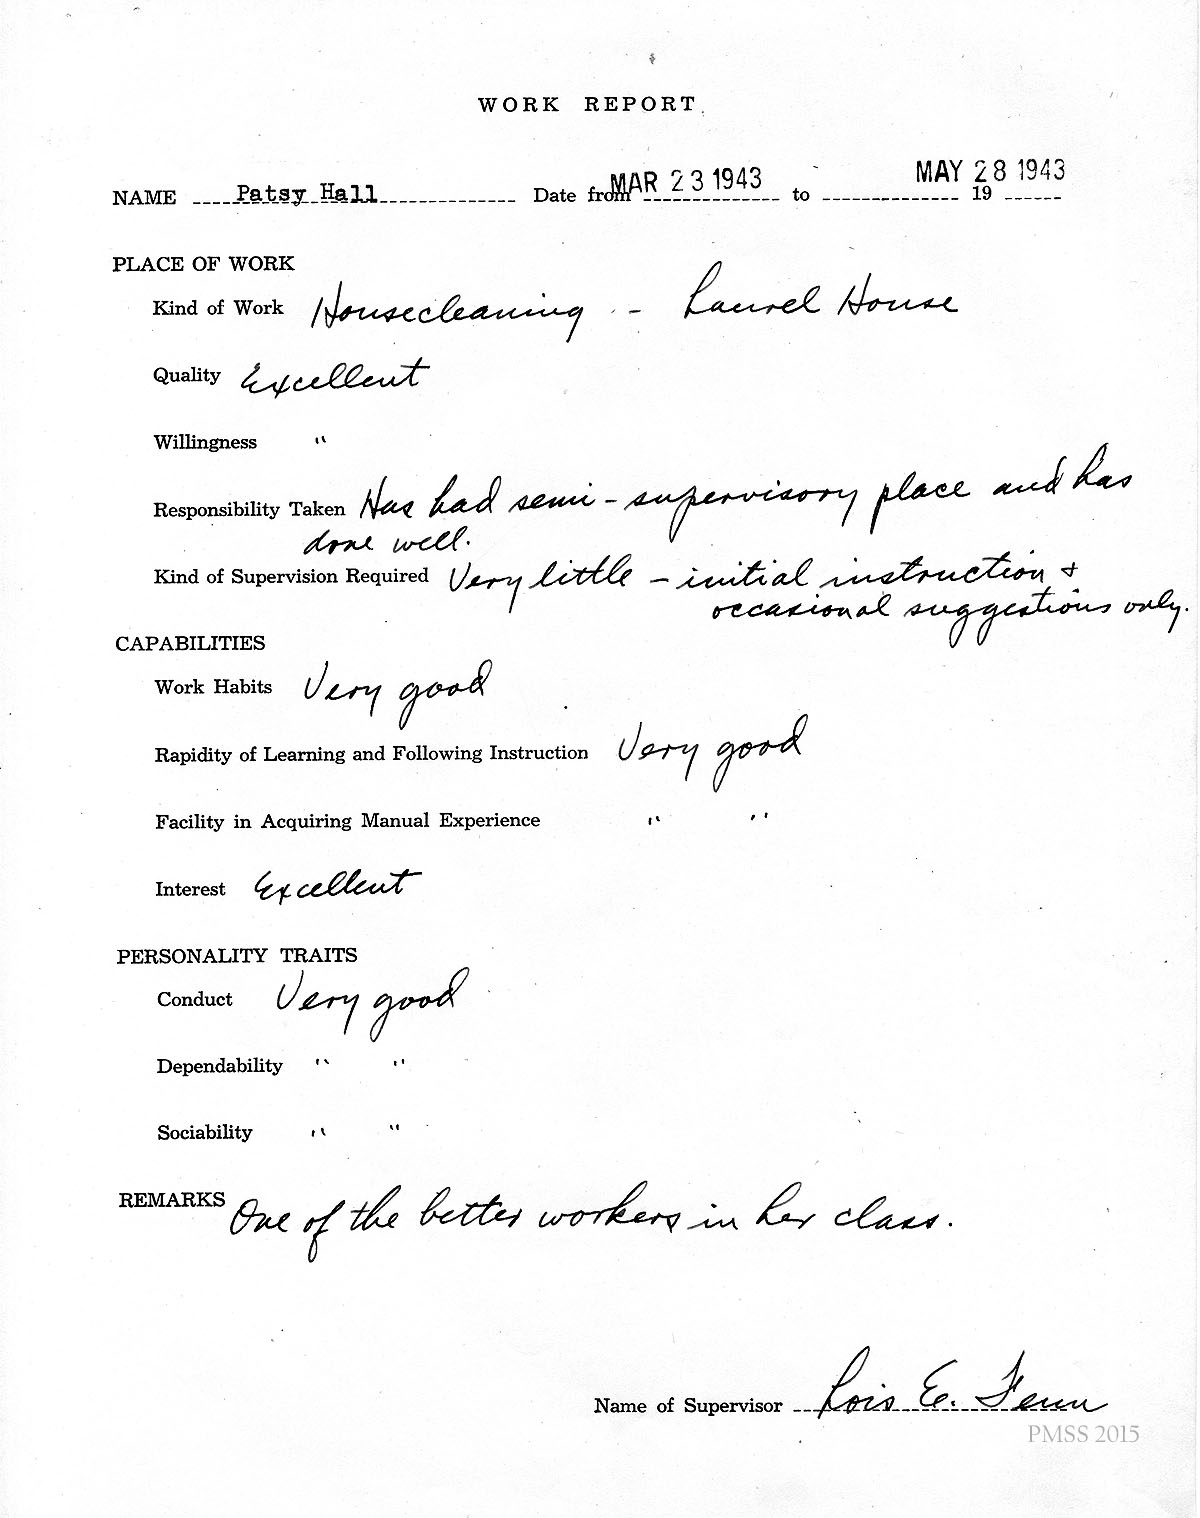 WORK REPORT
NAME Patsy Hall Date from MAR 23 1943 to MAY 28 1943 19
PLACE OF WORK
Kind of Work Housecleaning - Laurel House
Quality Excellent
Willingness "
Responsibility Taken Has had semi-supervisory place and has
done well.
Kind of Supervision Required Very little - initial instruction +
occasional suggestions only.
CAPABILITIES
Work Habits Very good
Rapidity of Learning and Following Instruction Very good
Facility in Acquiring Manual Experience " "
Interest Excellent
PERSONALITY TRAITS
Conduct Very good
Dependability " "
Sociability " "
REMARKS One of the better workers in her class.
Name of Supervisor Lois E. Fenn
PMSS 2015